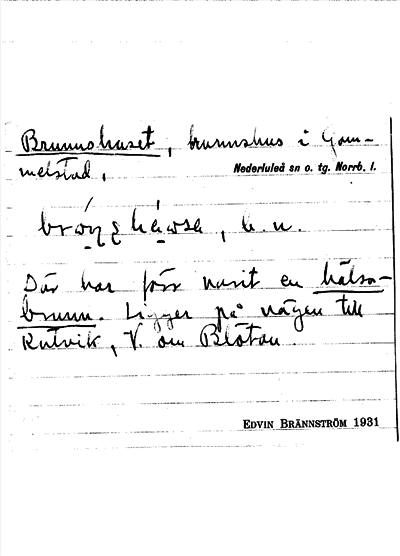 Brunnshuset, brunnshus i Gam-
melstad,
Nederluleå sn o. tg. Norrb. l.
b. u.
Där har förr varit en hälso-
brunn. Ligger på vägen till
Rutvik, V. om Blötan.
EDVIN BRÄNNSTRÖM 1931